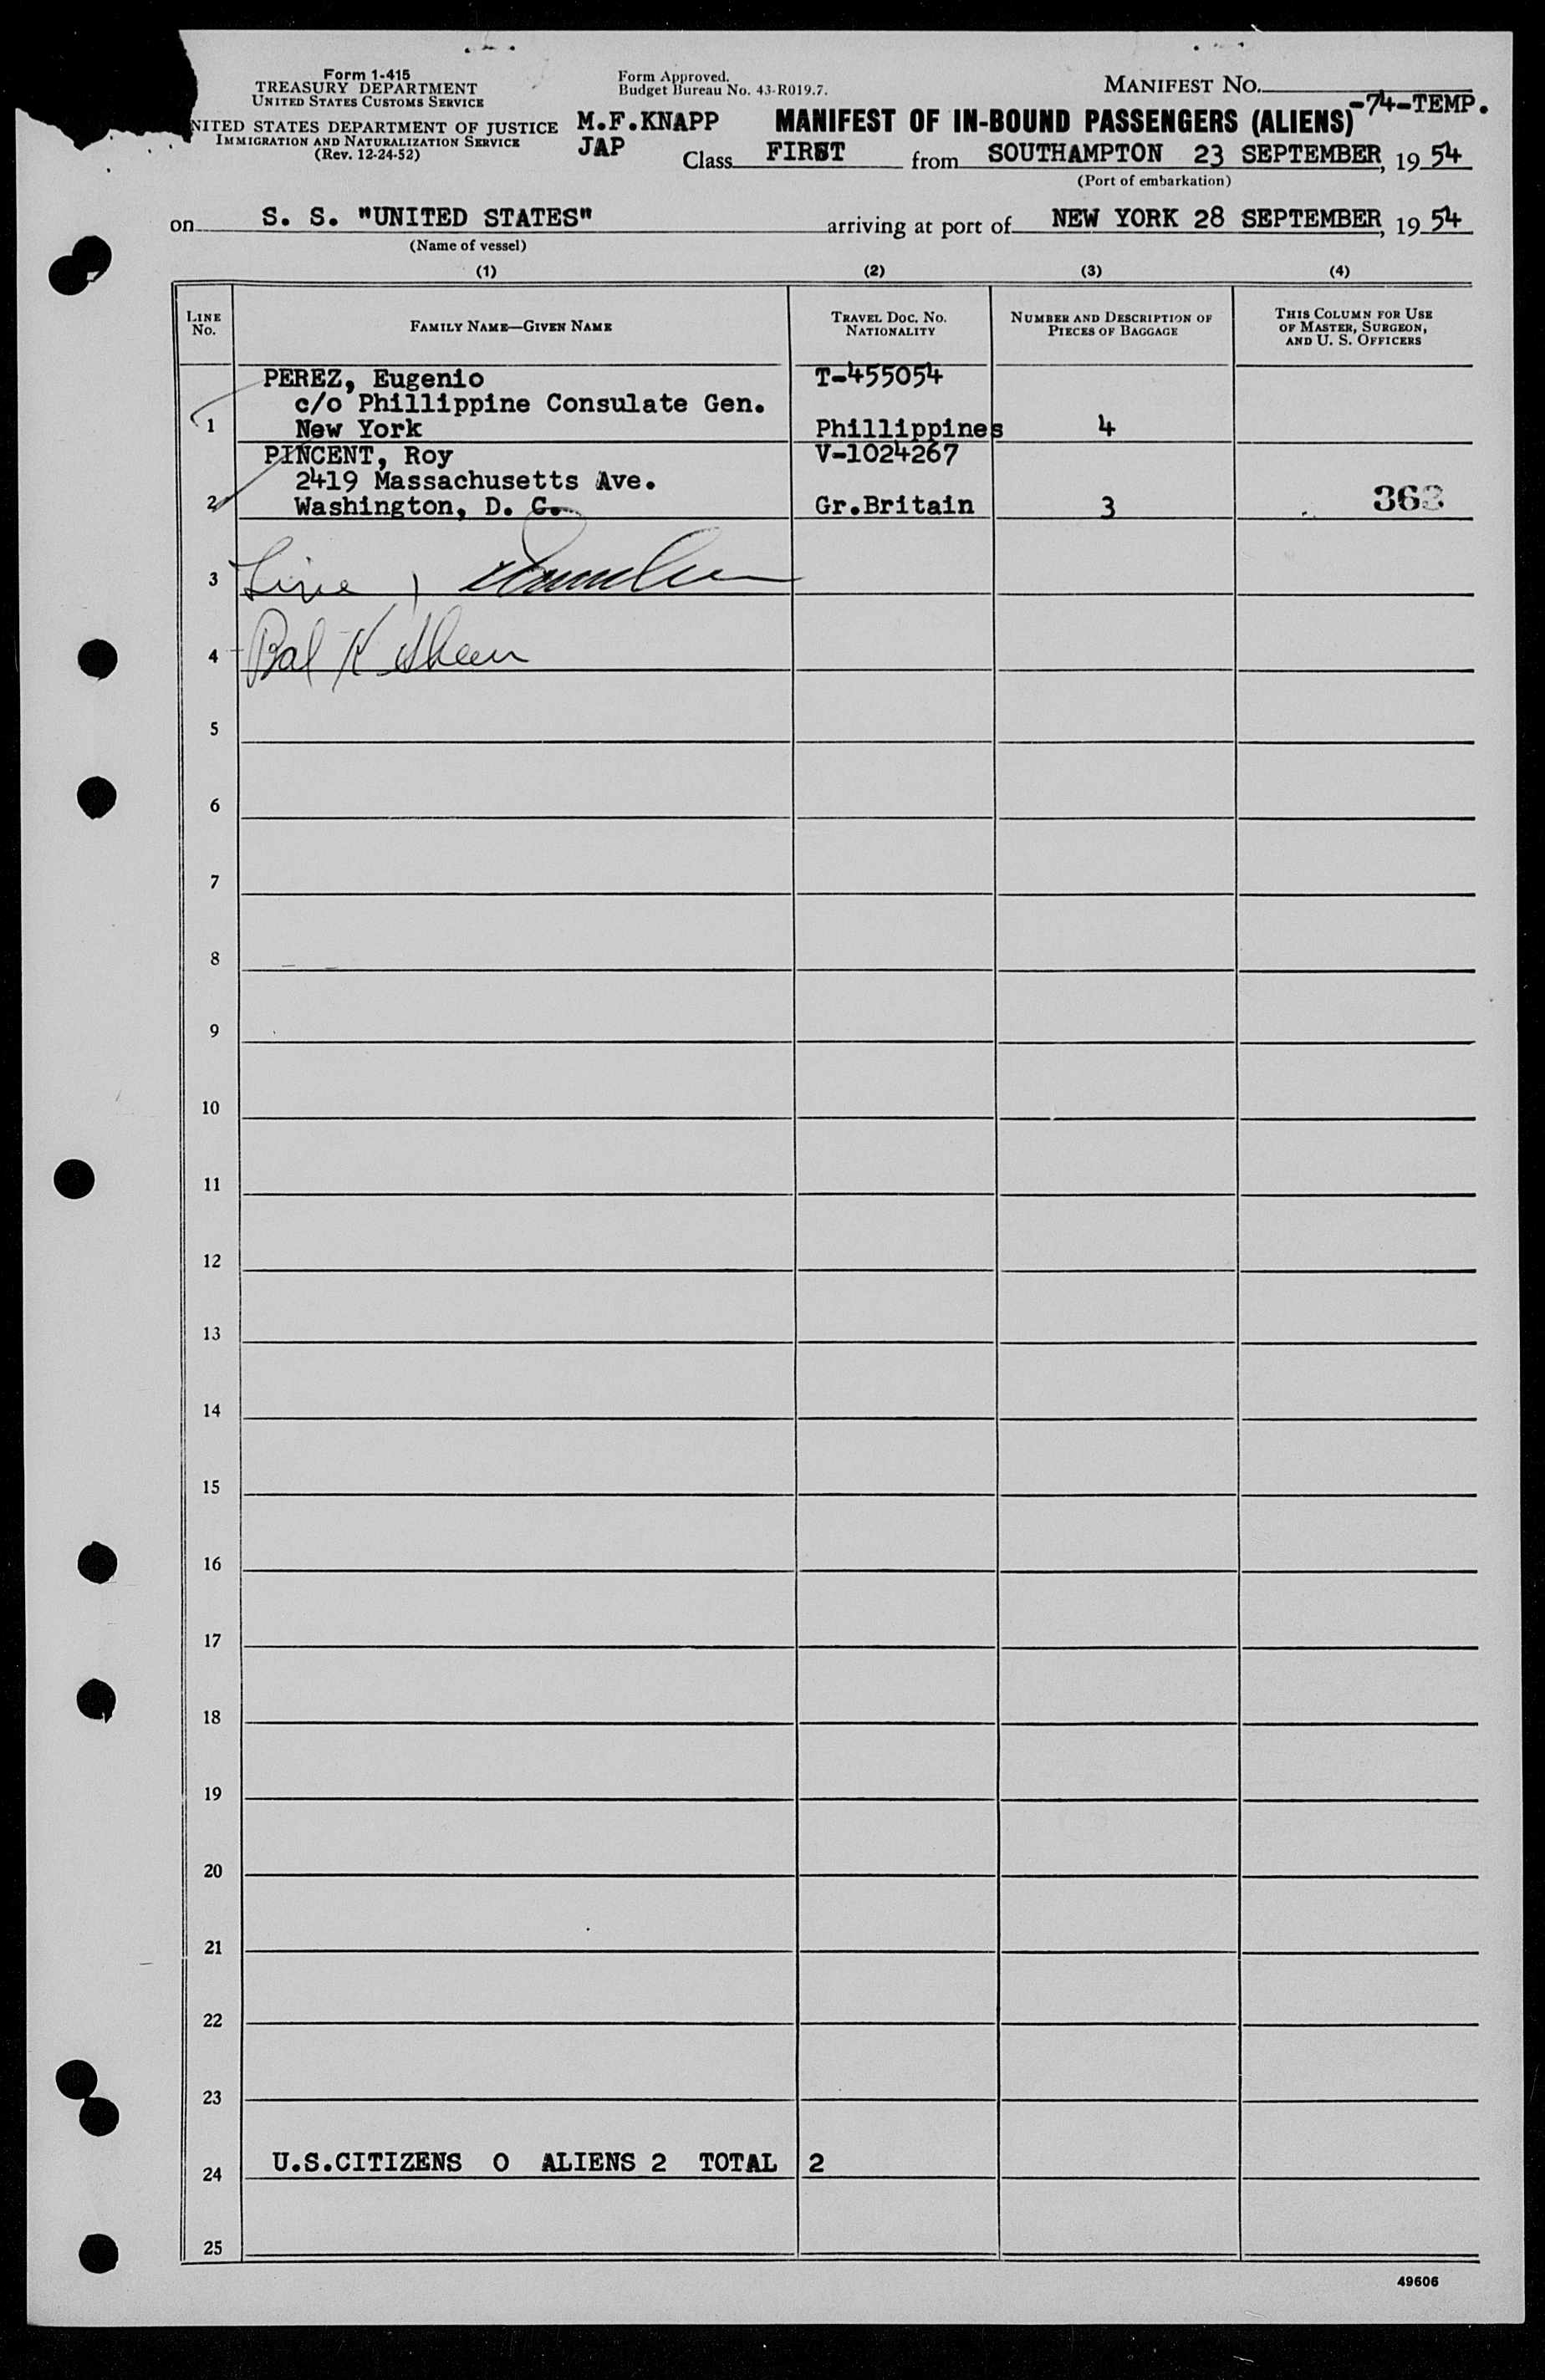 Form 1-415
TREASURY DEPARTMENT
UNITED STATES CUSTOMS SERVICE
NITED STATES DEPARTMENT OF JUSTICE
IMMIGRATION AND NATURALIZATION SERVICE
(Rev. 12-24-52)
Form Approved.
Budget Bureau No. 43-R019.7.
MANIFEST NO.
-74-TEMP.
M.F.KNAPP MANIFEST OF IN-BOUND PASSENGERS (ALIENS)
JAP Class FIRST from SOUTHAMPTON 23 SEPTEMBER, 19 54
(Port of embarkation)
on S. S. "UNITED STATES" arriving at port of NEW YORK 28 SEPTEMBER, 19 54
(Name of vessel)
(1) (2) (3) (4)
LINE NO. FAMILY NAME—GIVEN NAME TRAVEL DOC. NO. NATIONALITY NUMBER AND DESCRIPTION OF PIECES OF BAGGAGE THIS COLUMN FOR USE OF MASTER, SURGEON, AND U. S. OFFICERS
PEREZ, Eugenio T-455054
c/o Phillippine Consulate Gen.
1 New York Phillippines 4
PINCENT, Roy V-1024267
2419 Massachusetts Ave.
2 Washington, D. C. Gr.Britain 3 363
3 Line 1
4 Bal K
5
6
7
8
9
10
11
12
13
14
15
16
17
18
19
20
21
22
23
24 U.S.CITIZENS 0 ALIENS 2 TOTAL 2
25
49606